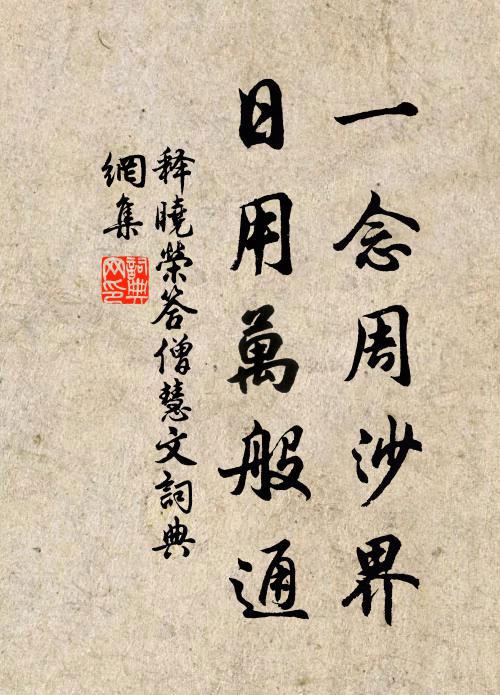 一念周沙界
日用萬般通
释曉榮答僧慧文詞典
網集
詞典
網印